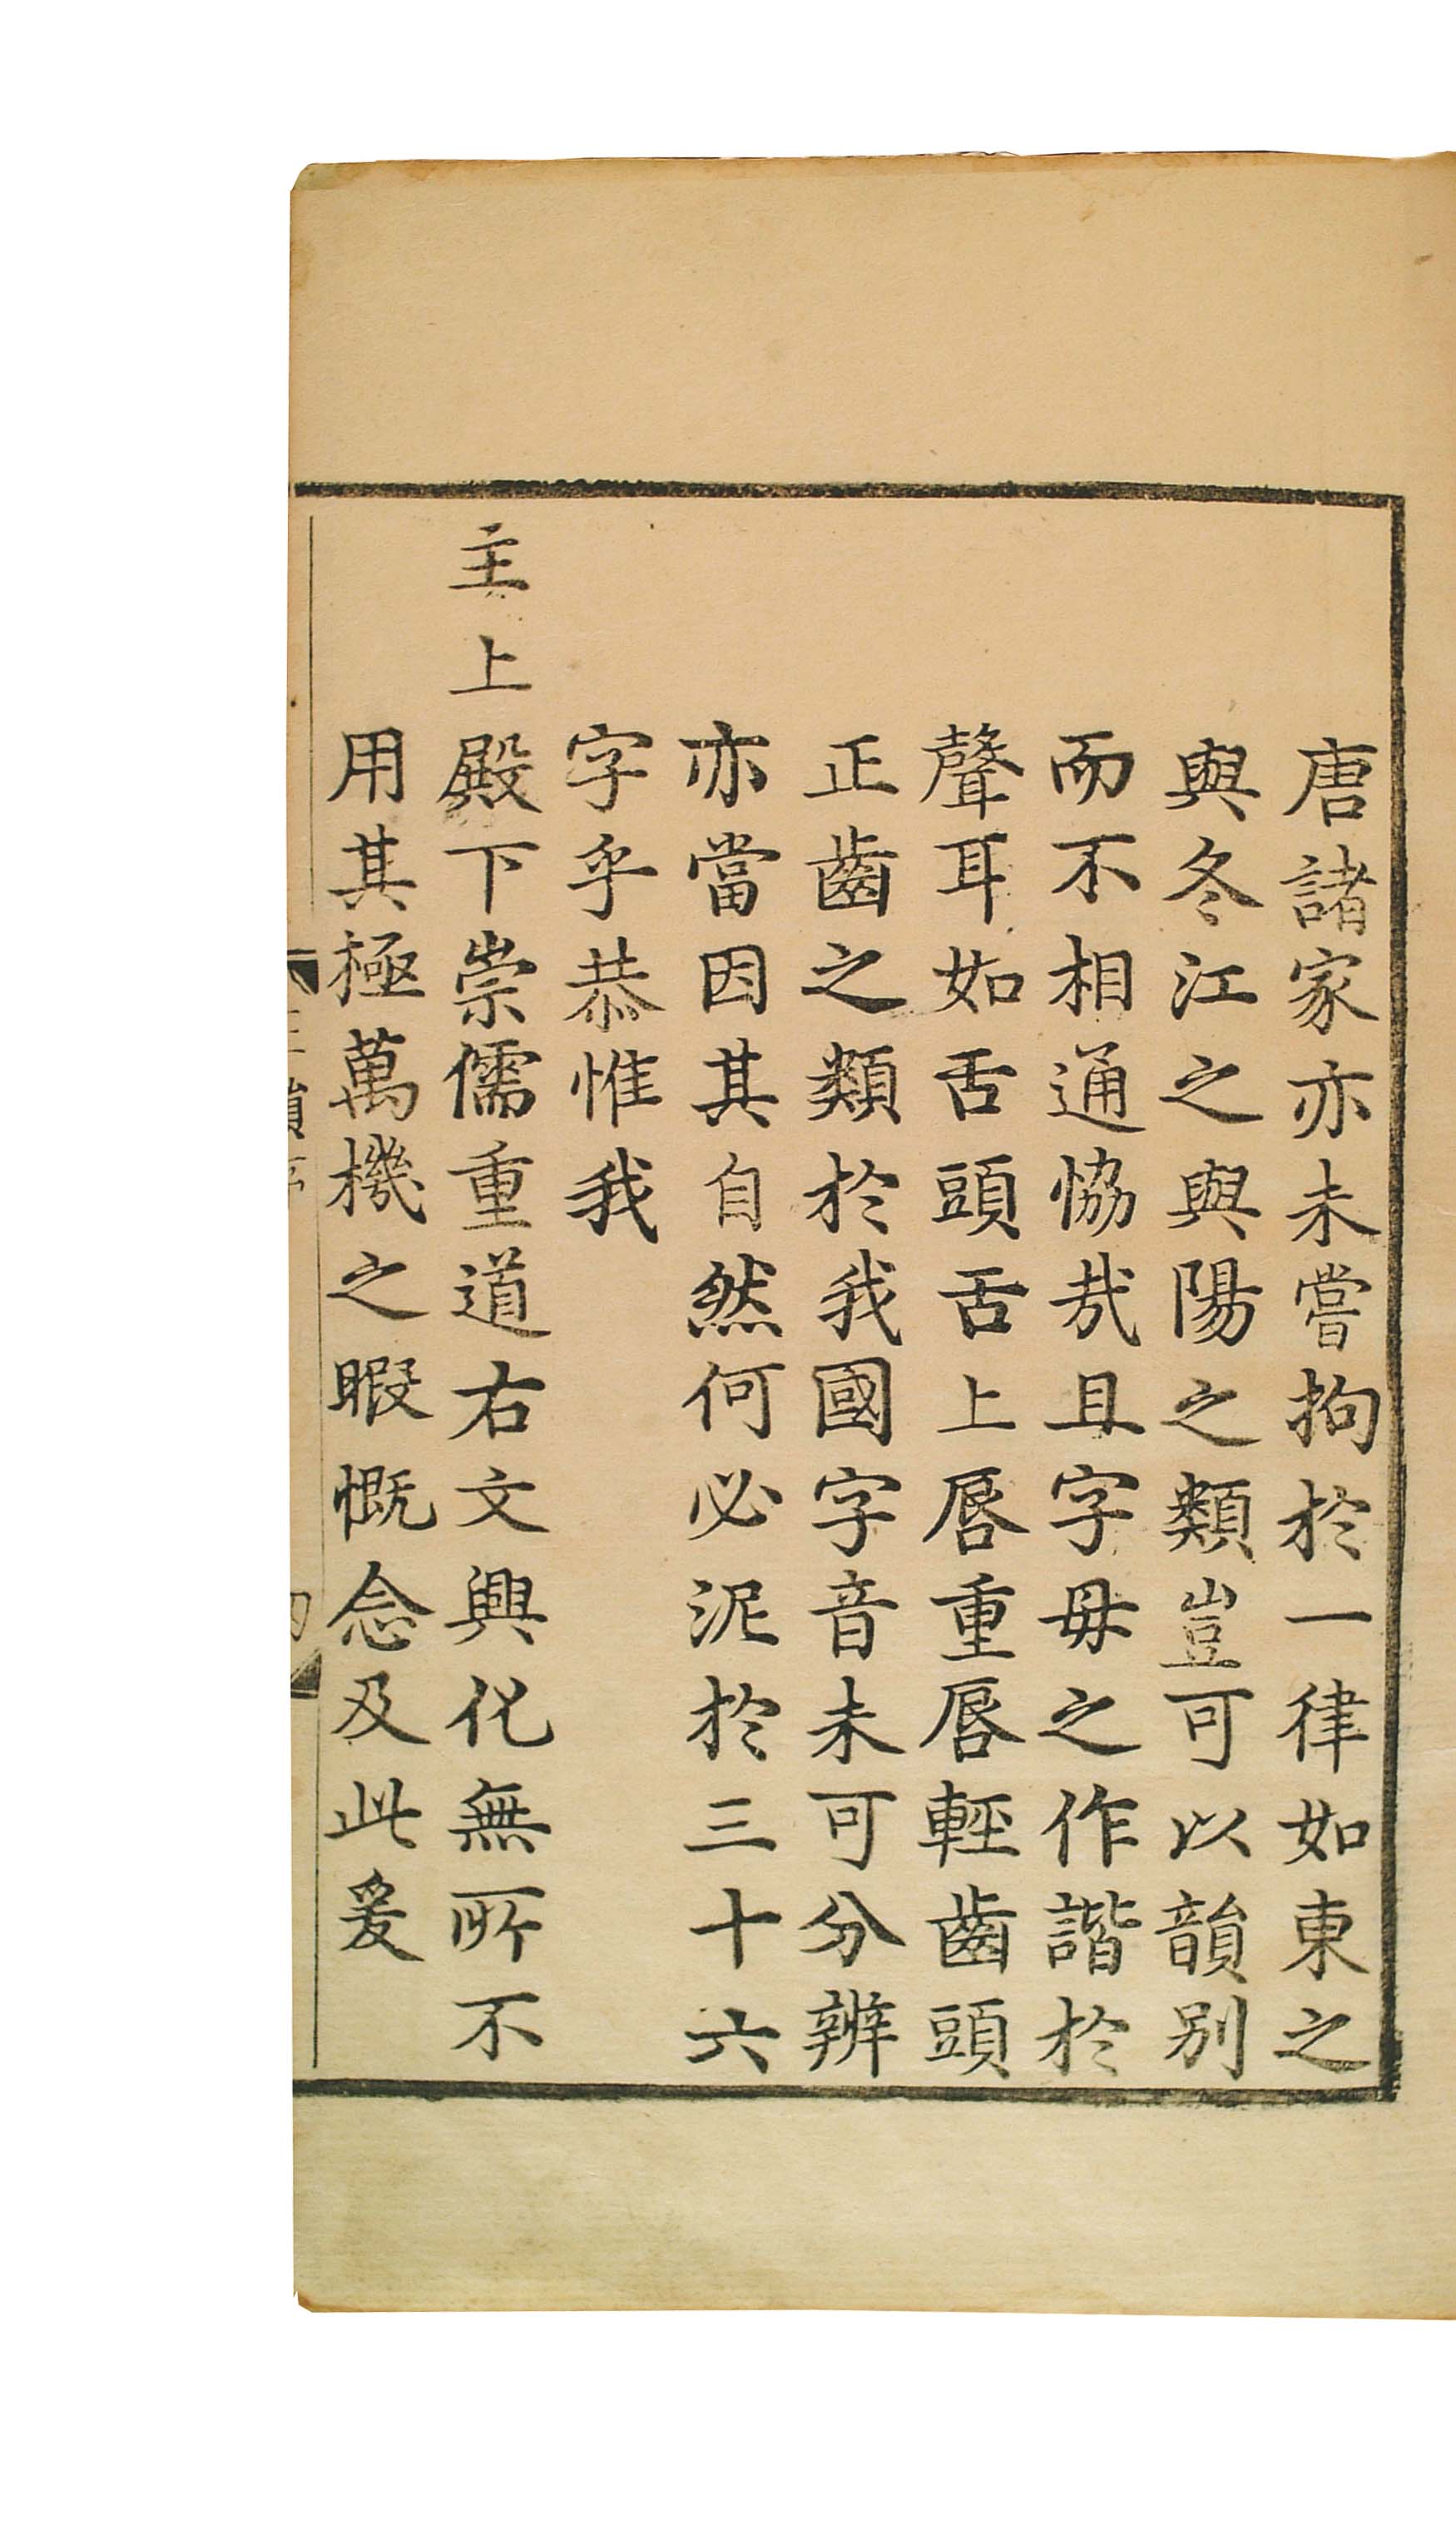 唐諸家亦未嘗拘於一律如東之
與冬江之與陽之類豈可以韻別
而不相通恊㢤且字母之作諧於
聲耳如舌頭舌上唇重唇輕齒頭
正齒之類於我國字音未可分辨
亦當因其自然何必泥於三十六
字乎恭惟我
主上殿下崇儒重道右文興化無所不
用其極萬機之暇慨念及此爰